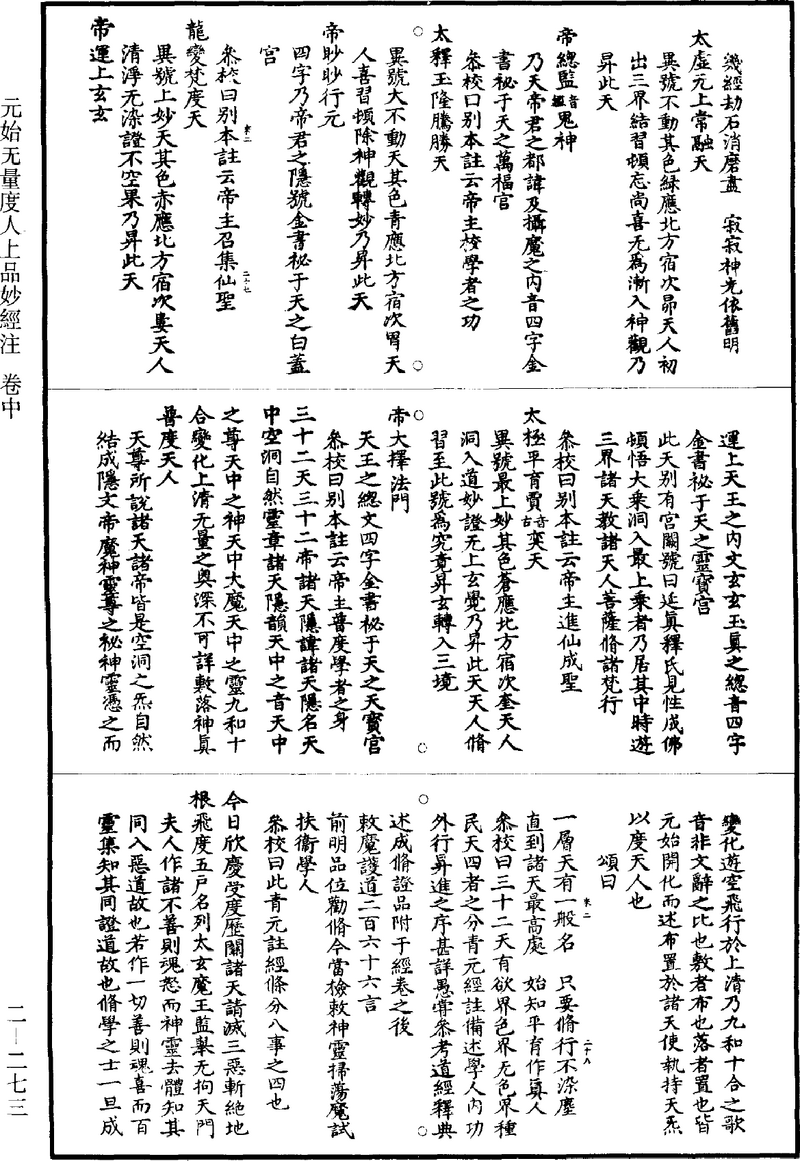 幾經劫石消磨盡　寂寂神光依舊明
太虛元上常融天
異號不動其色綠應北方宿次昴天人初
出三界結習頓忘尚喜无為漸入神觀乃
昇此天
帝總監音鑑鬼神
乃天帝君之都諱及攝魔之內音四字金
書祕于天之萬福宮
叅校曰别本註云帝主校學者之功
太釋玉隆騰勝天
異號大不動天其色青應北方宿次胃天
人喜習頓除神觀轉妙乃昇此天
帝眇眇行元
四字乃帝君之隱號金書祕于天之白蓋
宮
叅校曰别本註云帝主召集仙聖
龍變梵度天
異號上妙天其色赤應北方宿次婁天人
清淨无染證不空果乃昇此天
帝運上玄玄
運上天王之內文玄玄玉真之總音四字
金書祕于天之靈寶宮
此天别有宮闕號曰延真釋氏見性成佛
頓悟大乘洞入最上乘者乃居其中時遊
三界諸天教諸天人菩薩脩諸梵行
叅校曰别本註云帝主進仙成聖
太極平育賈音古奕天
異號最上妙其色蒼應北方宿次奎天人
洞入道妙證无上玄覺乃昇此天天人脩
習至此號為究竟昇玄轉入三境
帝大擇法門
天王之總文四字金書祕于天之天寶宮
叅校曰别本註云帝主普度學者之身
三十二天三十二帝諸天隱諱諸天隱名天
中空洞自然靈章諸天隱韻天中之音天中
之尊天中之神天中大魔天中之靈九和十
合變化上清无量之奥深不可詳敷落神真
普度天人
天尊所說諸天諸帝皆是空洞之炁自然
結成隱文帝魔神靈尊之祕神靈憑之而
變化遊空飛行於上清乃九和十合之歌
音非文辭之比也敷者布也落者置也皆
元始開化而述布置於諸天使執持天炁
以度天人也
頌曰
一層天有一般名　只要脩行不染塵
直到諸天最高處　始知平育作真人
叅校曰三十二天有欲界色界无色界種
民天四者之分青元經註備述學人內功
外行昇進之序甚詳愚嘗叅考道經釋典
述成脩證品附于經卷之後
敕魔護道二百六十六言
前明品位勸脩今當檢敕神靈掃蕩魔試
扶衛學人
叅校曰此青元註經條分八事之四也
今日欣慶受度歷關諸天請滅三惡斬絕地
根飛度五戶名列太玄魔王監舉无拘天門
夫人作諸不善則魂怨而神靈去體知其
同入惡道故也若作一切善則魂喜而百
靈集知其同證道故也脩學之士一旦成
元始无量度人上品妙經注　卷中
二—二七三